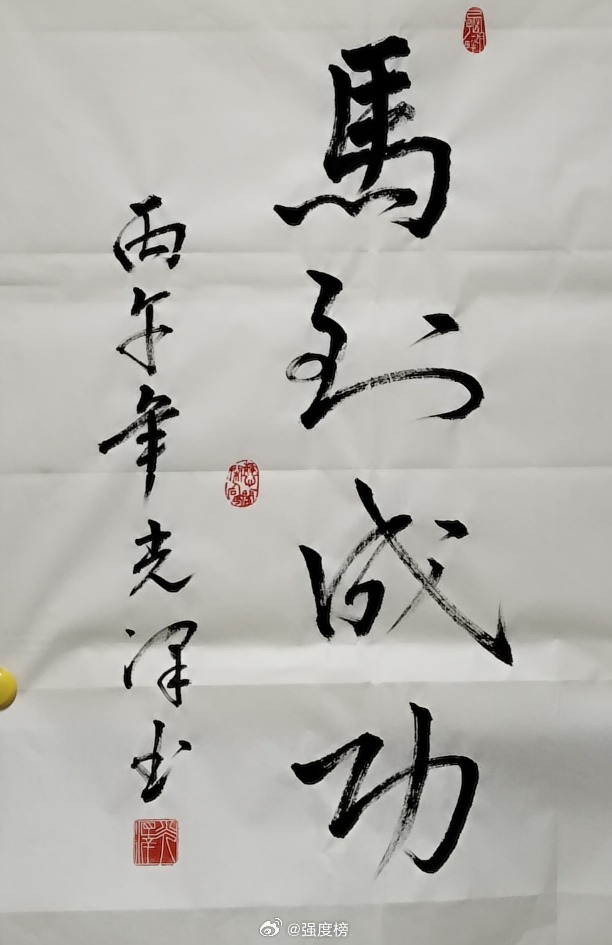 馬到成功
丙午年光泽书
@强度榜